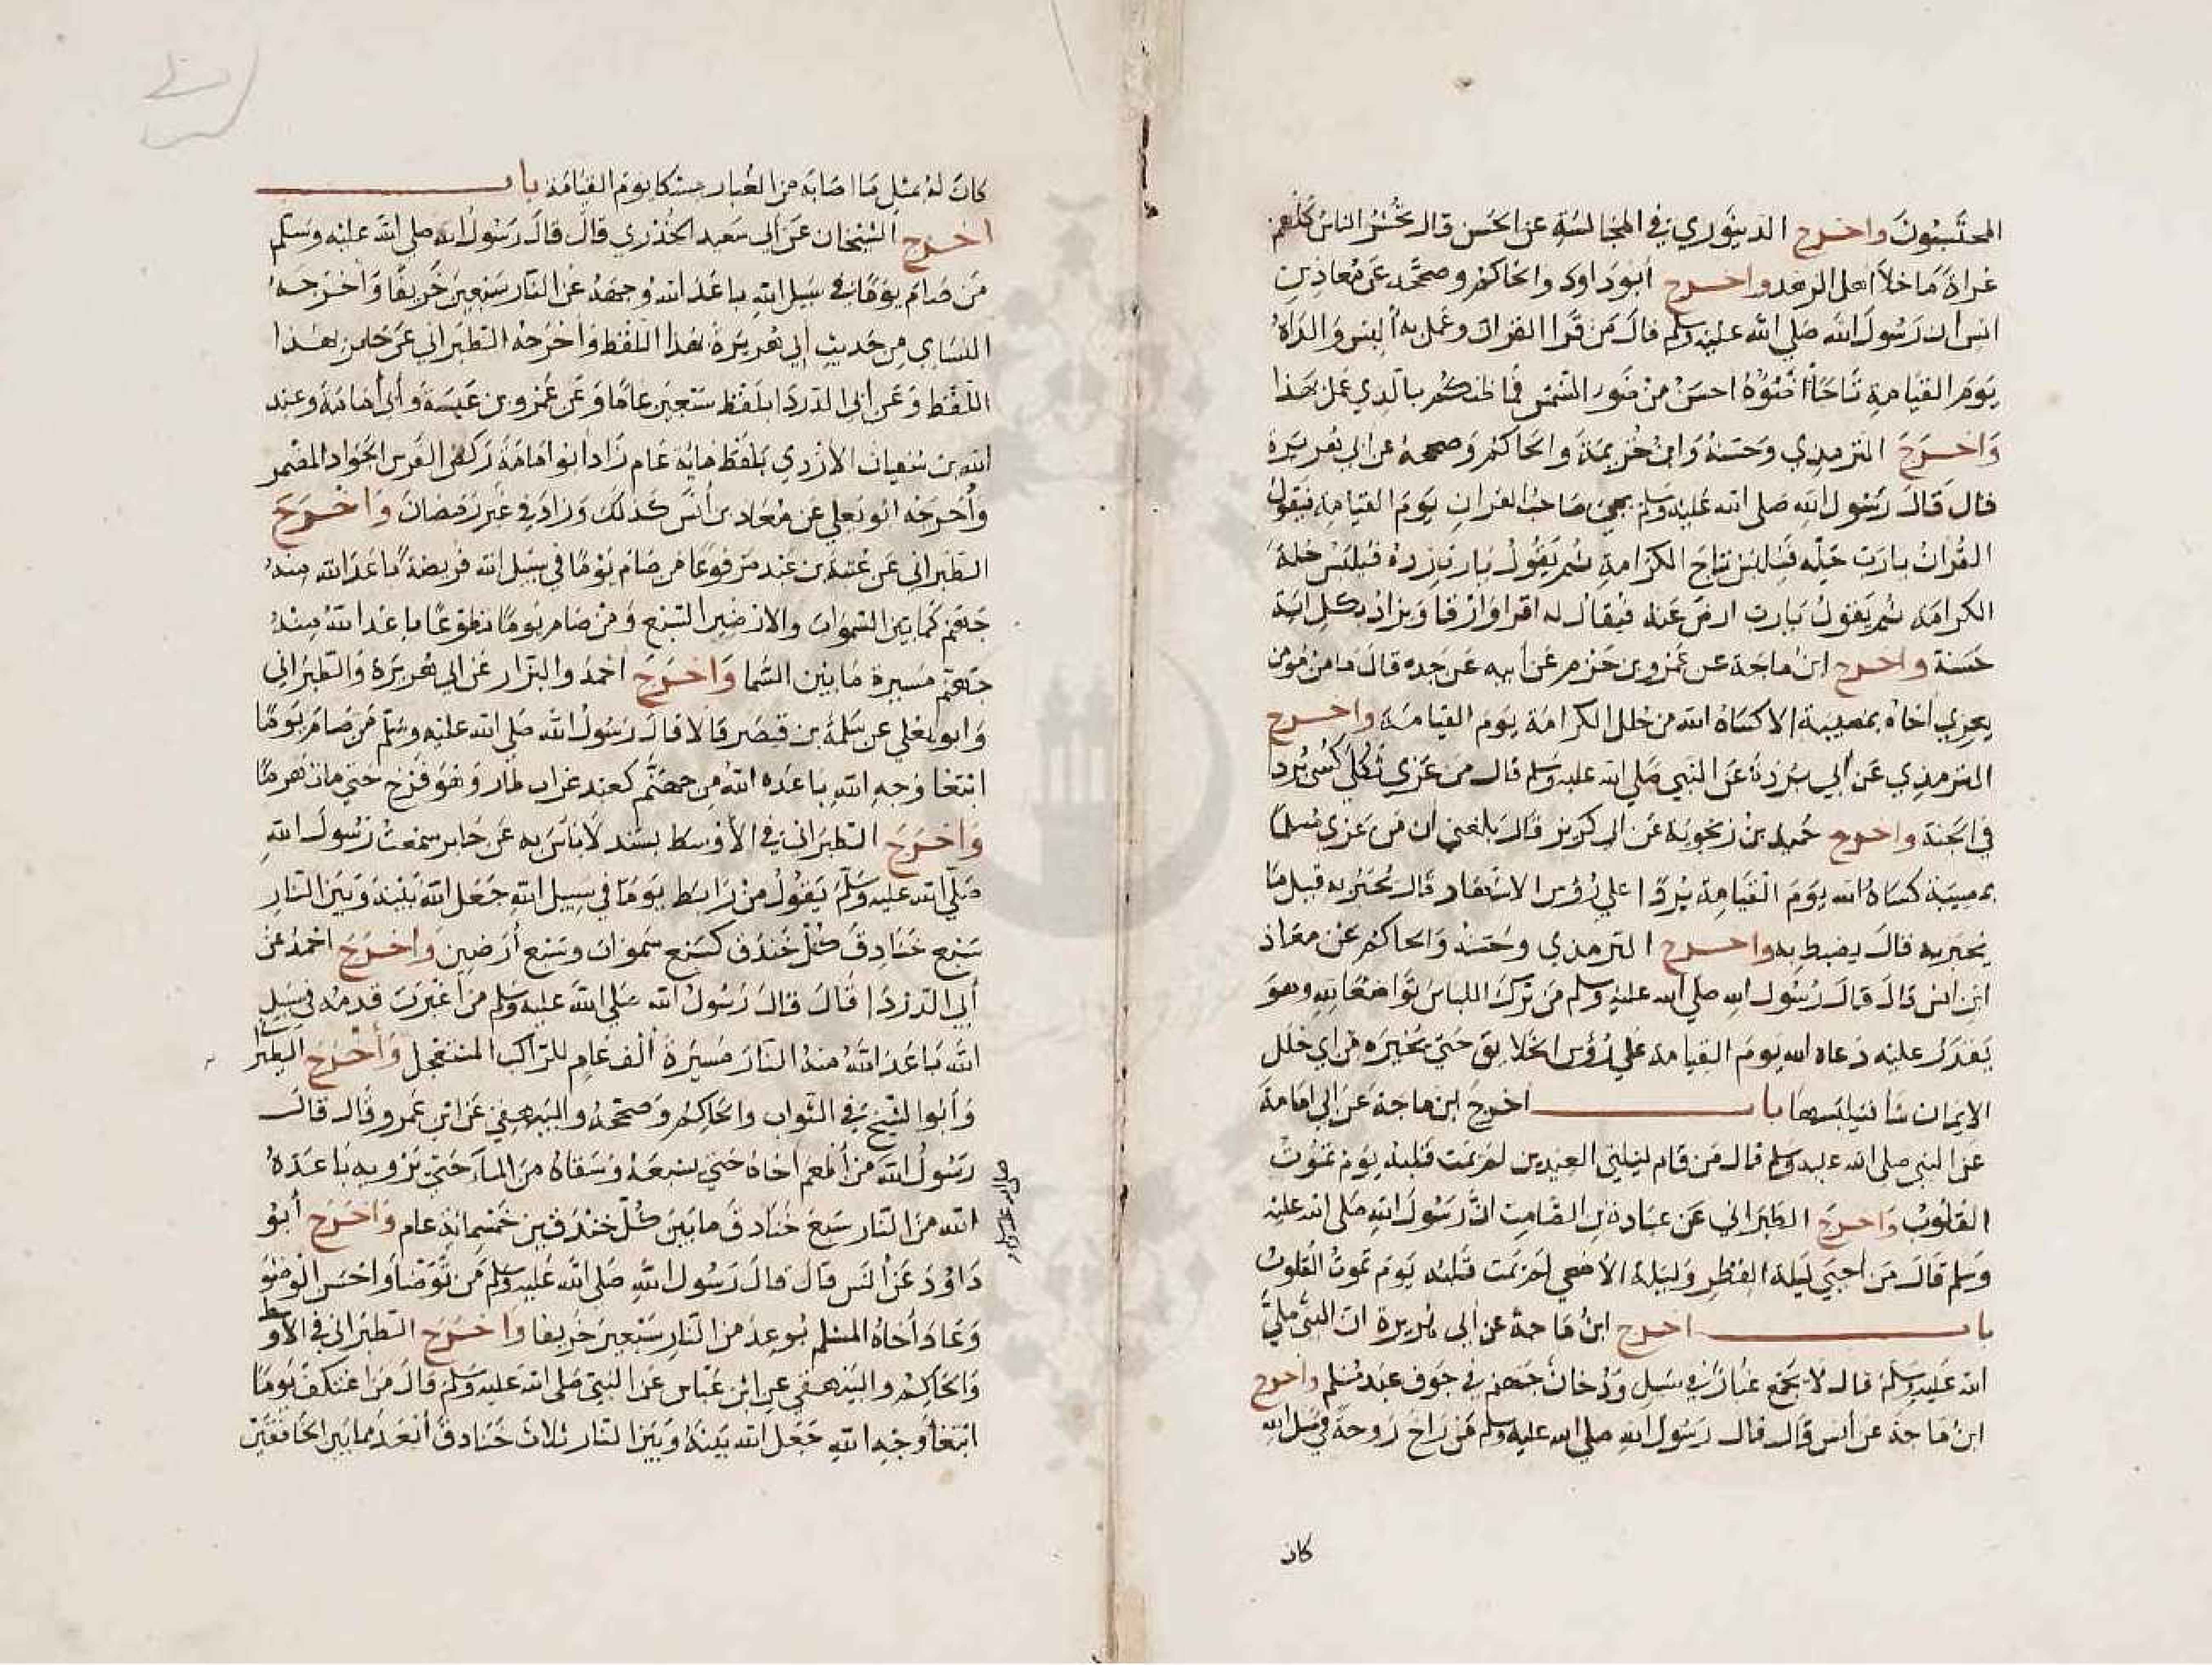 المحتسبون واخرج الدينوري في المجالسة عن الحسن قال يحشر الناس كلهم
عراة ما خلا اهل الزهد واخرج أبوداود والحاكم وصححه عن معاذ بن
انس ان رسول الله صلي الله عليه وسلم قال من قرا القران وعمل به ألبس والداه
يوم القيامة تاجا ضوؤه احسن من ضور الشمس فما ظنكم بالذي عمل بهذا
واخرج الترمذي وحسنه وابن خزيمة والحاكم وصححه عن ابي هريرة
قال قال رسول الله صلى الله عليه وسلم يجي صاحب القران يوم القيامة فيقول
القران يارب حله فيلبس تاج الكرامة ثم يقول يارب زده فيلبس حلة
الكرامة ثم يقول يارب ارض عنه فيقال له اقرا وارقا ويزاد بكل اية
حسنة واخرج ابن ماجة عن عمرو بن حزم عن أبيه عن جده قال ما من مومن
يعزي أخاه بمصيبة الا كساه الله من حلل الكرامة يوم القيامة واخرج
الترمذي عن أبي برزة عن النبي صلي الله عليه وسلم قال من عزي ثكلى كسي بردا
في الجنة واخرج حميد بن زنجوية عن ابي كريز قال بلغني ان من عزي مسلما
بمصيبة كساه الله يوم القيامة بردا علي رؤس الاشهاد قال يحبر به قيل ما
يحبر به قال يغبط به واخرج الترمذي وحسنه والحاكم عن معاذ
ابن انس قال قال رسول الله صلي الله عليه وسلم من ترك اللباس تواضعا لله وهو
يقدر عليه دعاه الله يوم القيامة علي رؤس الخلايق حتي يخيره من اي حلل
الايمان شا فيلبسها باب اخرج ابن ماجة عن ابي امامة
عن النبي صلى الله عليه وسلم قال من قام ليلتي العيدين لم يمت قلبه يوم تموت
القلوب واخرج الطبراني عن عبادة بن الصامت ان رسول الله صلي الله عليه
وسلم قال من احيي ليلة الفطر وليلة الأضحي لم يمت قلبه يوم تموت القلوب
باب اخرج ابن ماجة عن ابي هريرة ان النبي صلي
الله عليه وسلم قال لا يجمع غبار في سبيل ودخان جهنم في جوف عبد مسلم واخرج
ابن ماجة عن انس قال قال رسول الله صلي الله عليه وسلم من راح روحة في سبيل الله
كان
كان له بمثل ما اصابه من الغبار مسكا يوم القيامة باب
اخرج الشيخان عن أبي سعيد الخدري قال قال رسول الله صلي الله عليه وسلم
من صام يوما في سبيل الله باعد الله وجهه عن النار سبعين خريفا واخرجه
النساي من حديث ابي هريرة بهذا اللفظ واخرجه الطبراني عن جابر بهذا
اللفظ وعن ابي الدردا بلفظ سبعين عاما وعن عمرو بن عبسة وأبي امامة وعبد
الله بن سفيان الأزدي بلفظ ماية عام زاد ابو امامة ركض الفرس الجواد المضمر
وأخرجه ابو يعلي عن معاذ بن أنس كذلك وزاد في غير رمضان واخرج
الطبراني عن عتبة بن عبد مرفوعا من صام يوما في سبيل الله فريضة باعد الله منه
جهنم كما بين السموات والارضين السبع ومن صام يوما تطوعا باعد الله منه
جهنم مسيرة ما بين السما واخرج احمد والبزار عن ابي هريرة والطبراني
وابو يعلي عن سلمة بن قيصر قالا قال رسول الله صلي الله عليه وسلم من صام يوما
ابتغا وجه الله باعده الله من جهنم كبعد غراب طار وهو فرخ حتي مات هرما
واخرج الطبراني في الأوسط بسند لا باس به عن جابر سمعت رسول الله
صلي الله عليه وسلم يقول من رابط يوما في سبيل الله جعل الله بينه وبين النار
سبع خنادق كل خندق كسبع سموات وسبع أرضين واخرج احمد عن
أبي الدردا قال قال رسول الله صلي الله عليه وسلم من اغبرت قدمه في سبيل
الله باعد الله منه النار مسيرة ألف عام للراكب المستعجل وأخرج الطبرا
وأبوا الشيخ في الثواب والحاكم وصححه والبيهقي عن ابن عمرو قال قال
رسول الله من أطعم أخاه حتي يشبعه وسقاه من الماء حتي يرويه باعده
صلى الله عليه وسلم
الله من النار سبع خنادق ما بين كل خندقين خمسمائة عام واخرج أبو
داود عن انس قال قال رسول الله صلي الله عليه وسلم من توضأ واحسن الوضو
وعاد أخاه المسلم بوعد من النار سبعين خريفا واخرج الطبراني في الأوسط
والحاكم والبيهقي عن ابن عباس عن النبي صلي الله عليه وسلم قال من اعتكف يوما
ابتغا وجه الله جعل الله بينه وبين النار ثلاث خنادق أبعد مما بين الخافقين